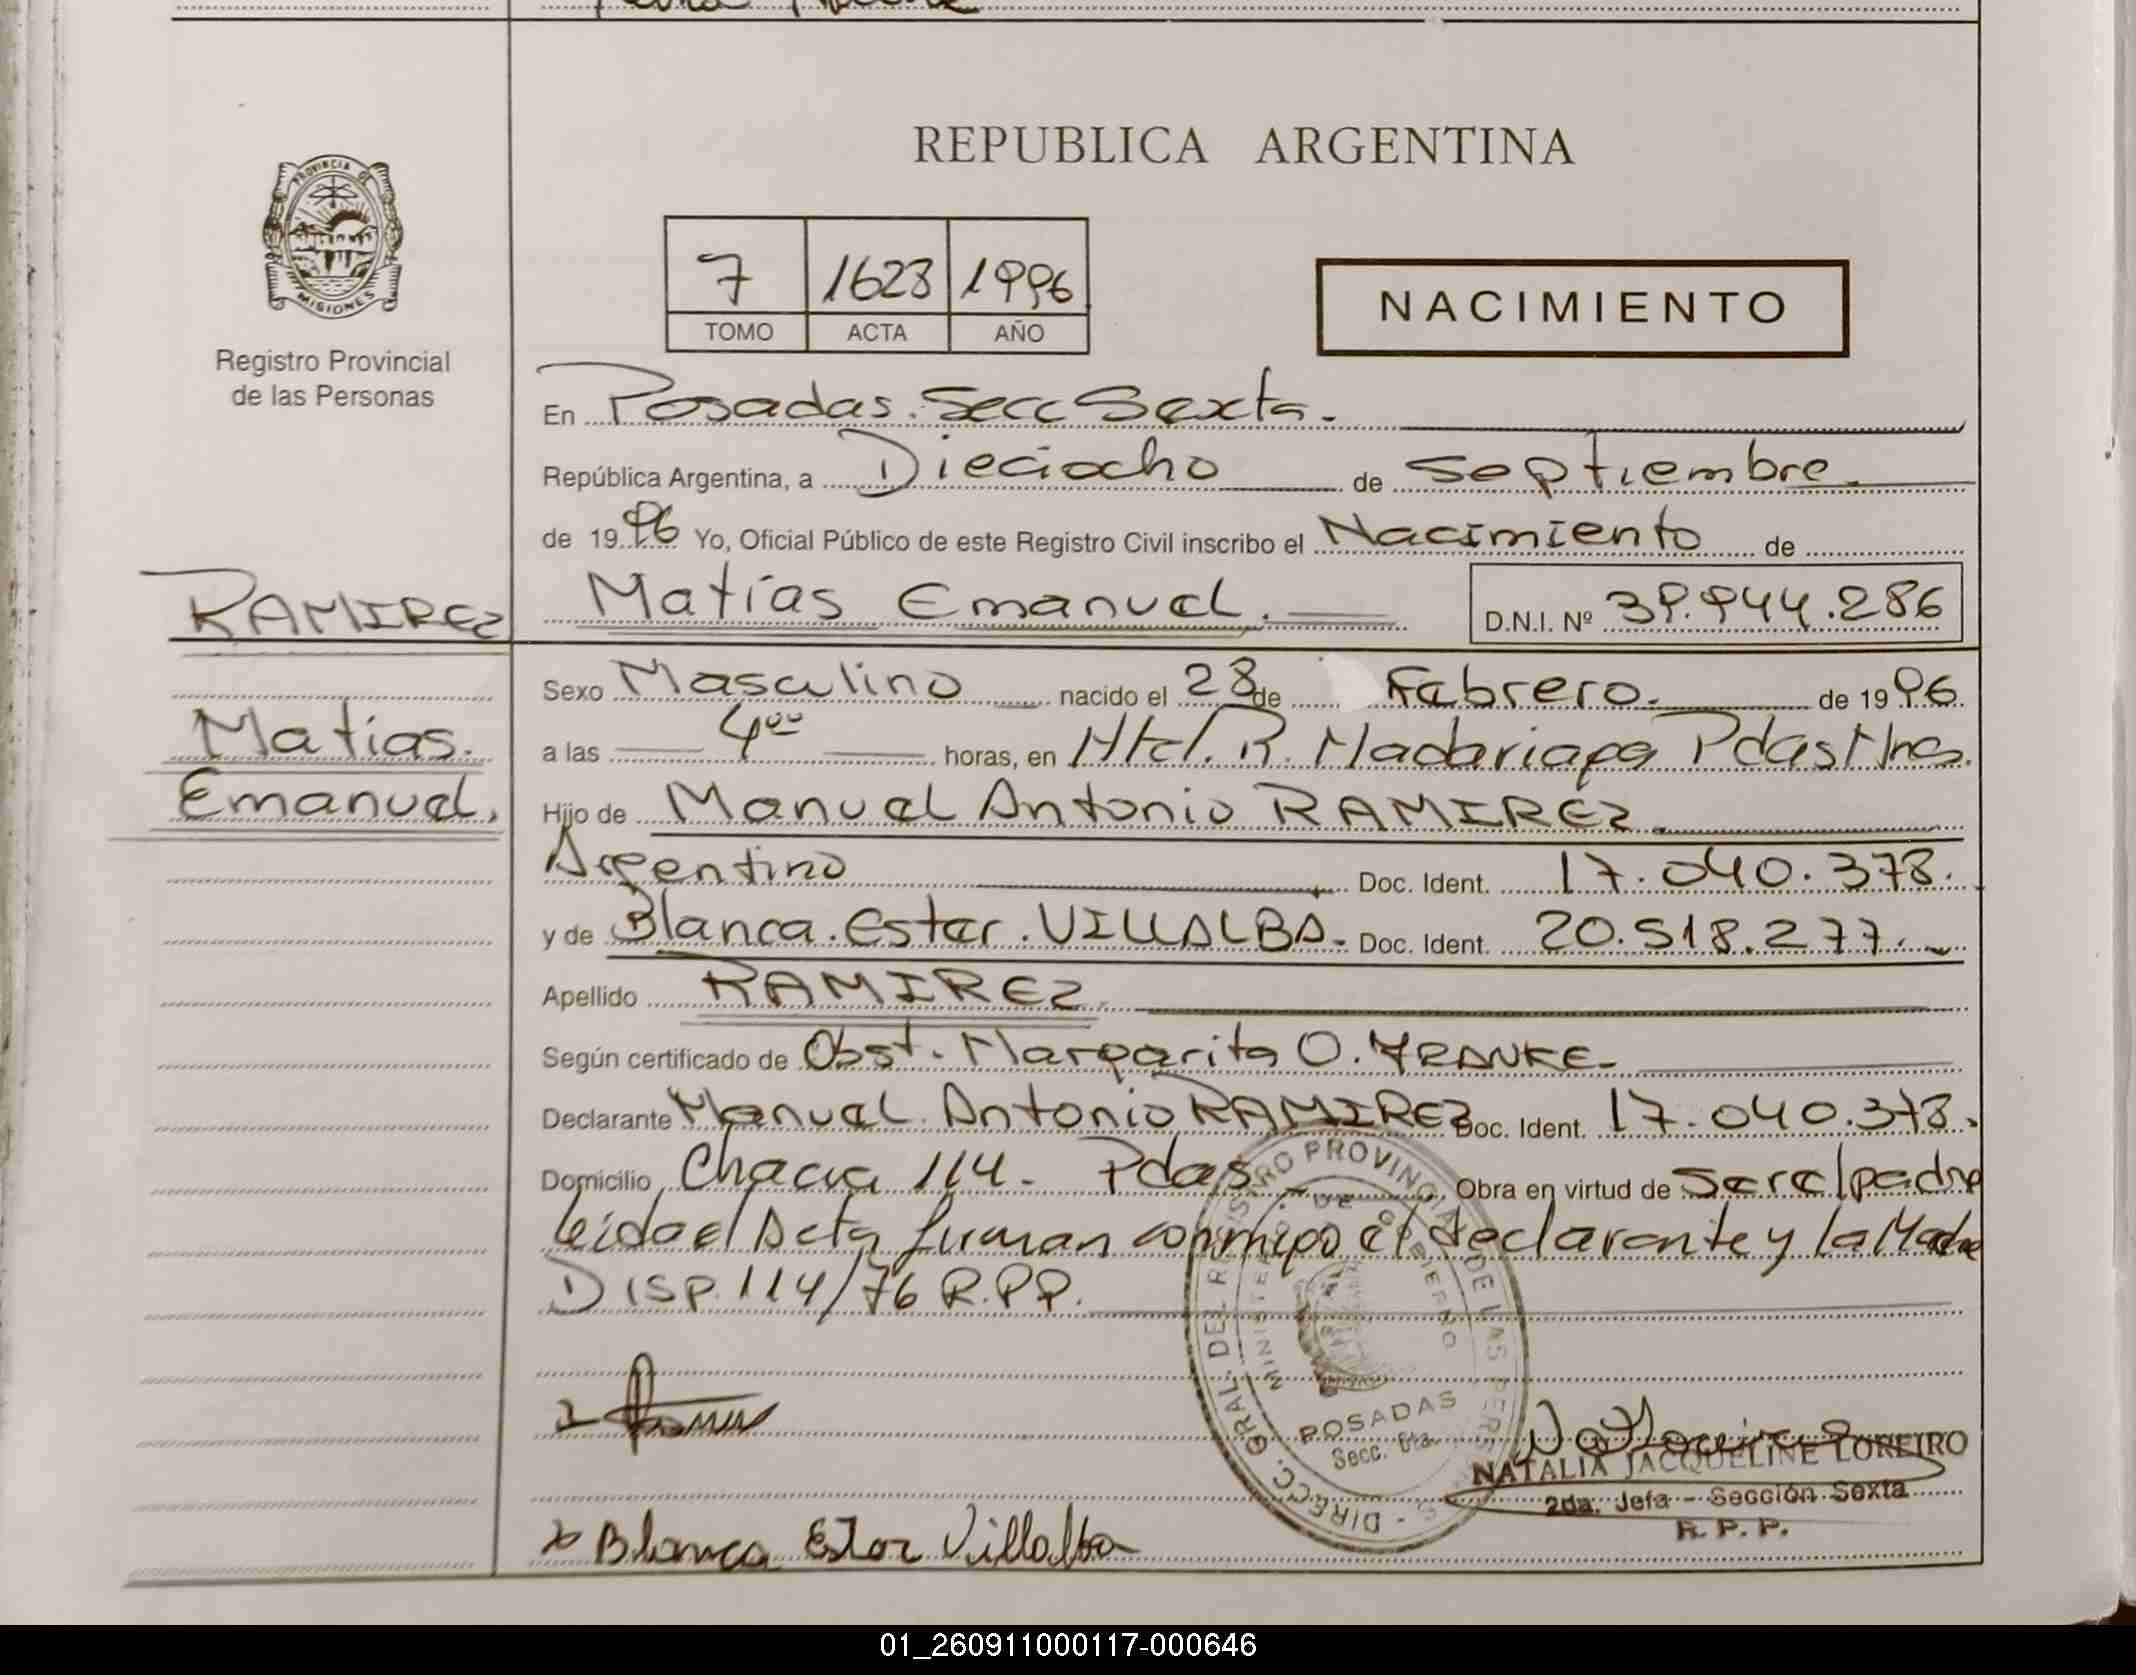 REPUBLICA ARGENTINA
PROVINCIA DE MISIONES
Registro Provincial
de las Personas
7 1623 1996
TOMO ACTA AÑO
NACIMIENTO
En Posadas. Secc Sexta.
República Argentina, a Dieciocho de Septiembre.
de 1996 Yo, Oficial Público de este Registro Civil inscribo el Nacimiento de
Matías Emanuel. D.N.I. Nº 39.944.286
RAMIREZ
Matías.
Emanuel.
Sexo Masculino nacido el 28 de Febrero. de 1996.
a las 4°° horas, en Htal. R. Madariaga Pdas Mnes.
Hijo de Manuel Antonio RAMIREZ.
Argentino Doc. Ident. 17.040.378.
y de Blanca. Ester. VILLALBA. Doc. Ident. 20.518.277.
Apellido RAMIREZ.
Según certificado de Obst. Margarita O. FRANKE.
Declarante Manuel Antonio RAMIREZ Doc. Ident. 17.040.378.
Domicilio Chacra 114. Pdas. Obra en virtud de ser el padre
leida el Acta firman conmigo el declarante y la Madre
DISP. 114/76 R.P.P.
DIRECC. GRAL. DEL REGISTRO PROVINCIAL DE LAS PERS
MINISTERIO DE GOBIERNO
POSADAS
Secc. 6ta.
NATALIA JACQUELINE LOREIRO
2da. Jefa - Sección Sexta
R. P. P.
Blanca Ester Villalba
01_260911000117-000646